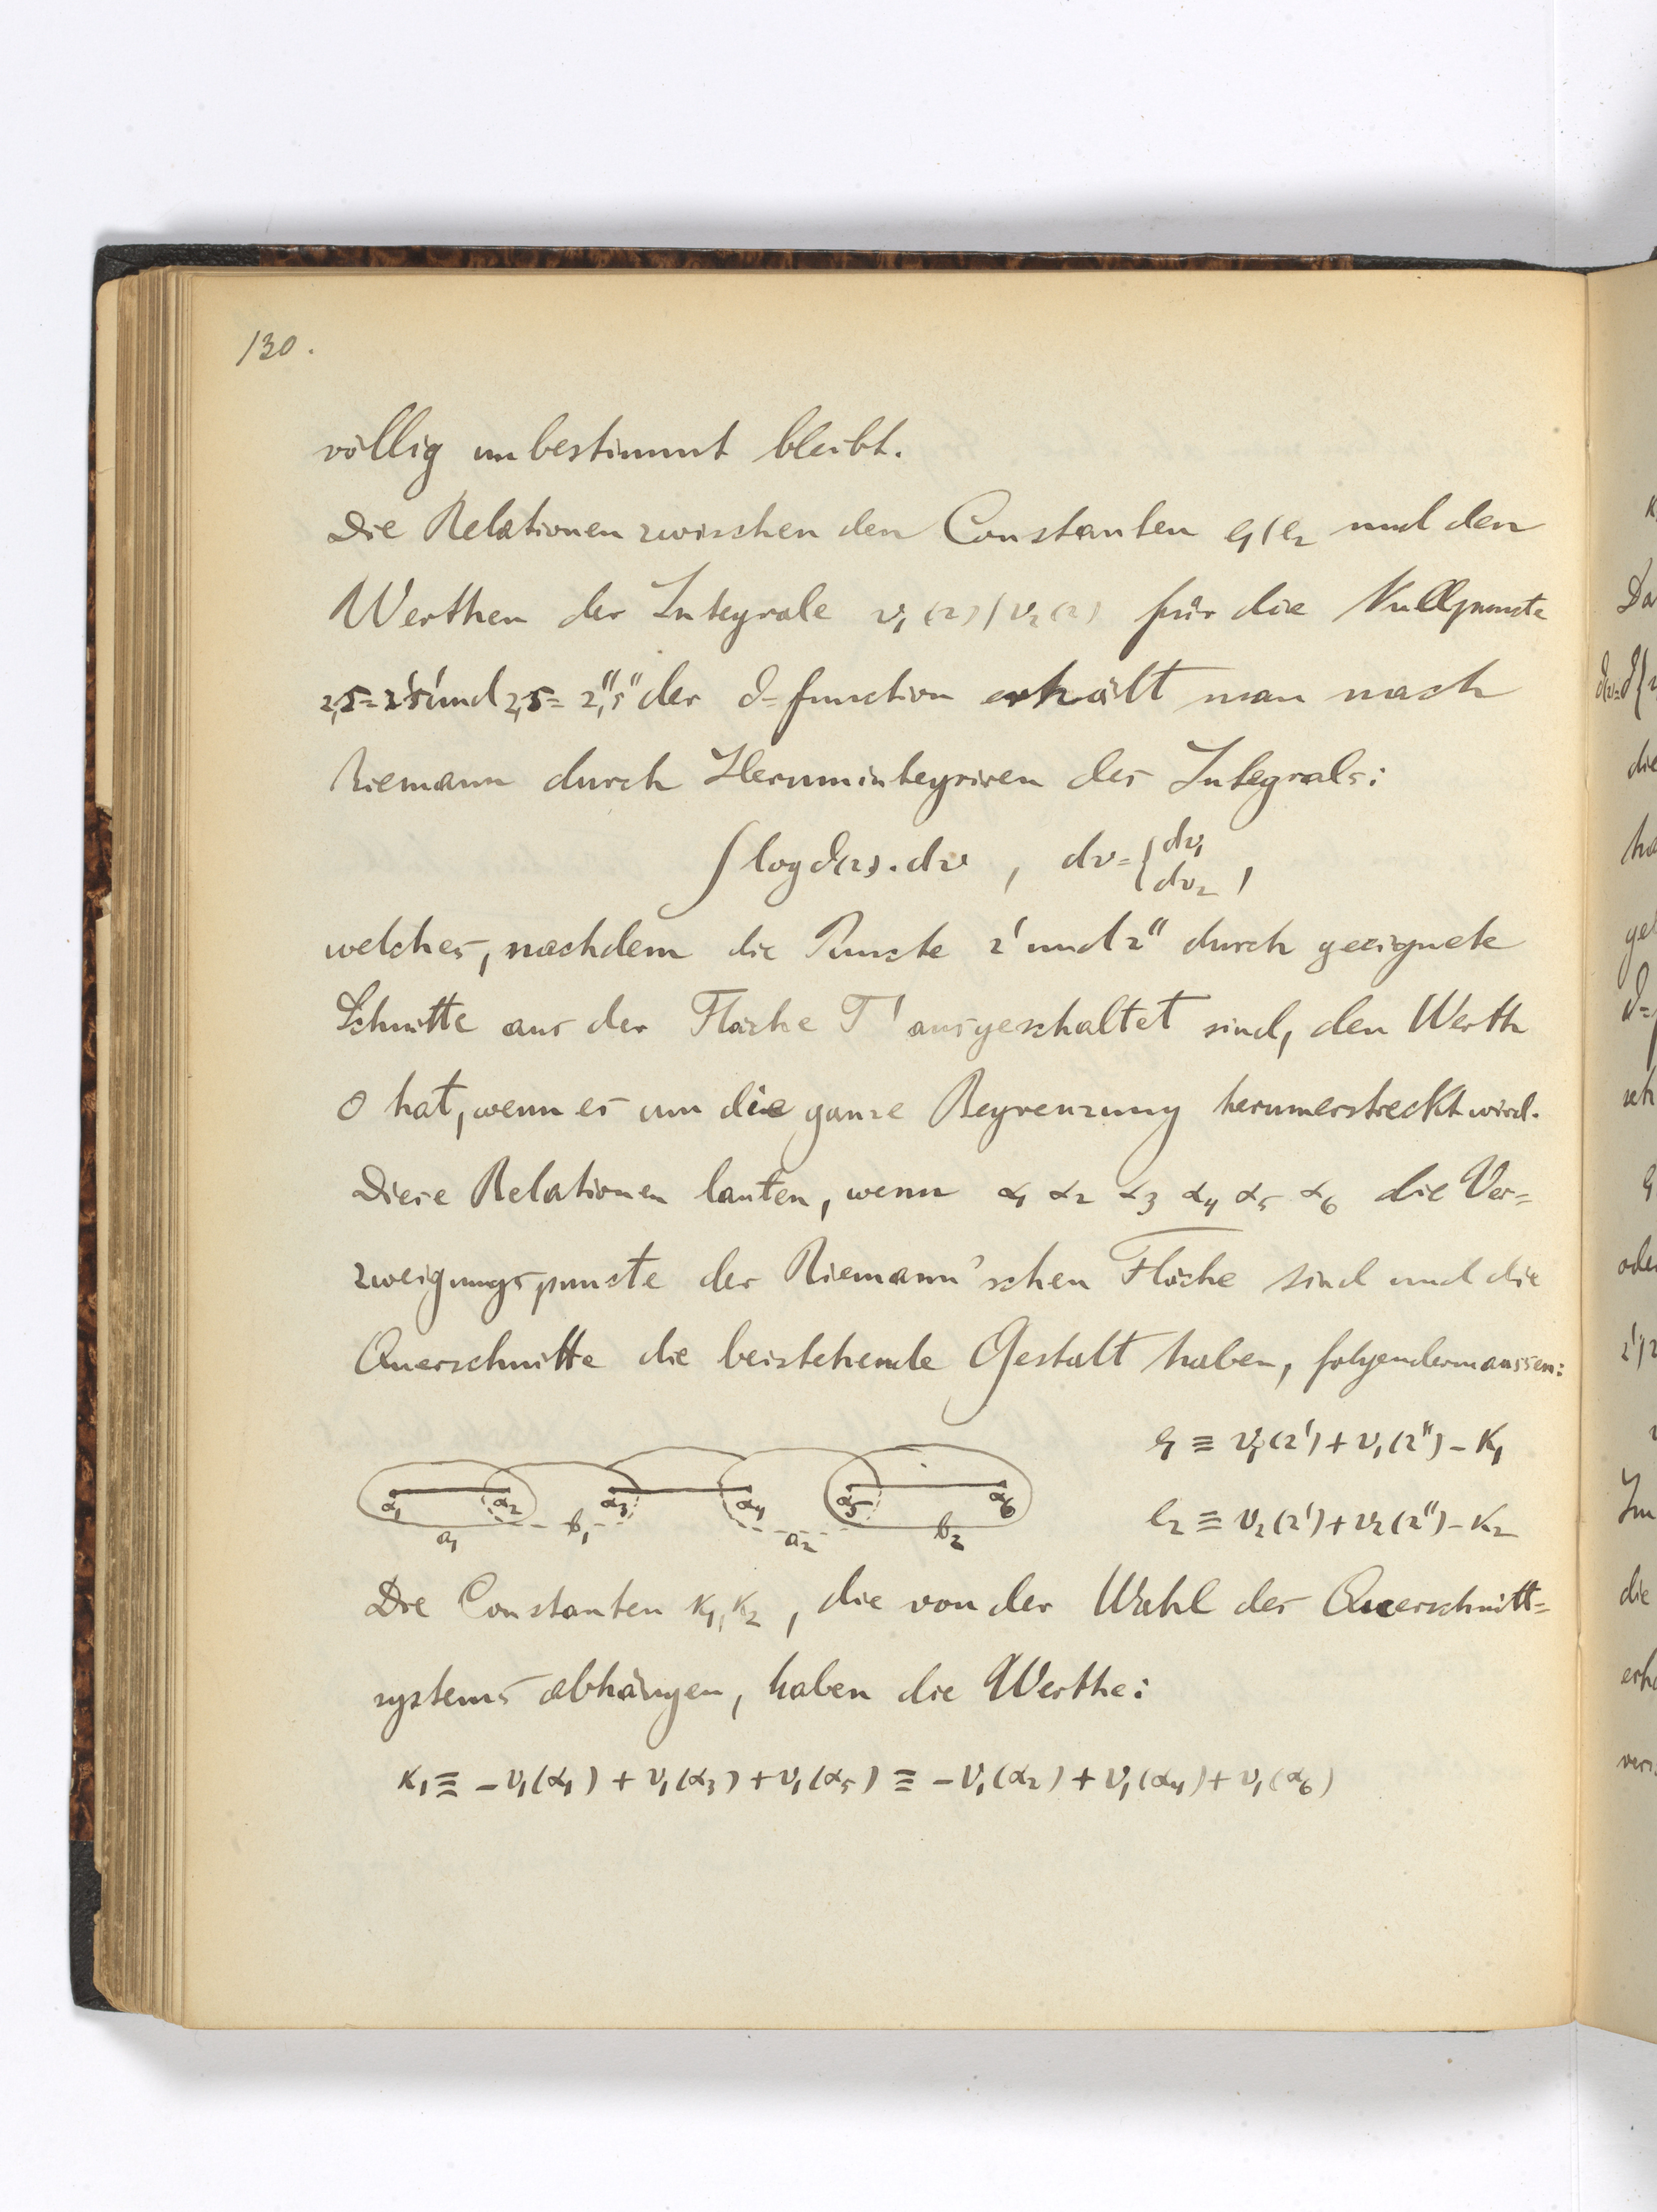 130.
völlig unbestimmt bleibt.
Die Relationen zwischen den Constanten e₁, e₂ und den
Werthen der Integrale v₁(z), v₂(z) für die Nullpuncte
z,s = z',s' und z,s = z'',s'' der ϑ=function erhält man nach
Riemann durch Herumintegriren des Integrals:
∫ log ϑ(z). dv , dv = { dv₁ dv₂ ,
welches, nachdem die Puncte z' und z'' durch geeignete
Schnitte aus der Fläche T' ausgeschaltet sind, den Werth
0 hat, wenn es um die ganze Begrenzung herumerstreckt wird.
Diese Relationen lauten, wenn α₁ α₂ α₃ α₄ α₅ α₆ die Ver=
zweigungspuncte der Riemann'schen Fläche sind und die
Querschnitte die beistehende Gestalt haben, folgendermaassen:
e₁ ≡ v₁(z') + v₁(z'') - K₁
α₁ α₂ α₃ α₄ α₅ α₆
a₁ b₁ a₂ b₂
e₂ ≡ v₂(z') + v₂(z'') - K₂
Die Constanten K₁, K₂, die von der Wahl des Querschnitt=
systems abhängen, haben die Werthe:
K₁ ≡ - v₁(α₁) + v₁(α₃) + v₁(α₅) ≡ - v₁(α₂) + v₁(α₄) + v₁(α₆)